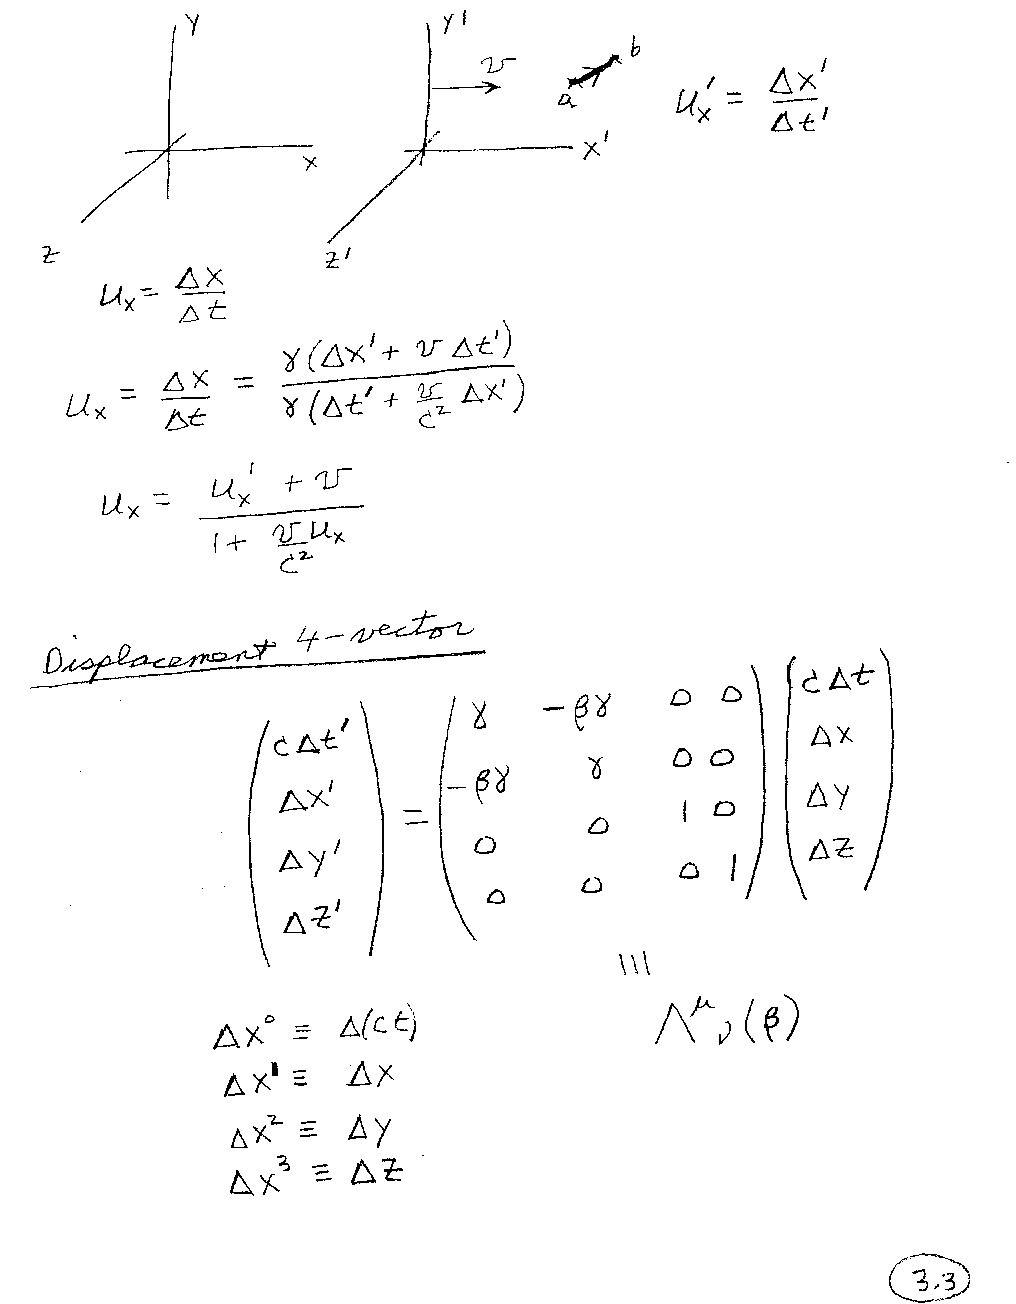 Y
Y'
v
a
b
u'ₓ = Δx'/Δt'
X
X'
Z
Z'
uₓ = Δx/Δt
uₓ = Δx/Δt = γ(Δx' + v Δt')/γ(Δt' + v/c² Δx')
uₓ = (u'ₓ + v)/(1 + v/c² uₓ)
Displacement 4-vector
(cΔt' Δx' Δy' Δz') = (γ -βγ 0 0 -βγ γ 0 0 0 0 1 0 0 0 0 1) (cΔt Δx Δy Δz)
|||
Λ^μ_ν(β)
Δx⁰ ≡ Δ(ct)
Δx¹ ≡ Δx
Δx² ≡ Δy
Δx³ ≡ Δz
3.3